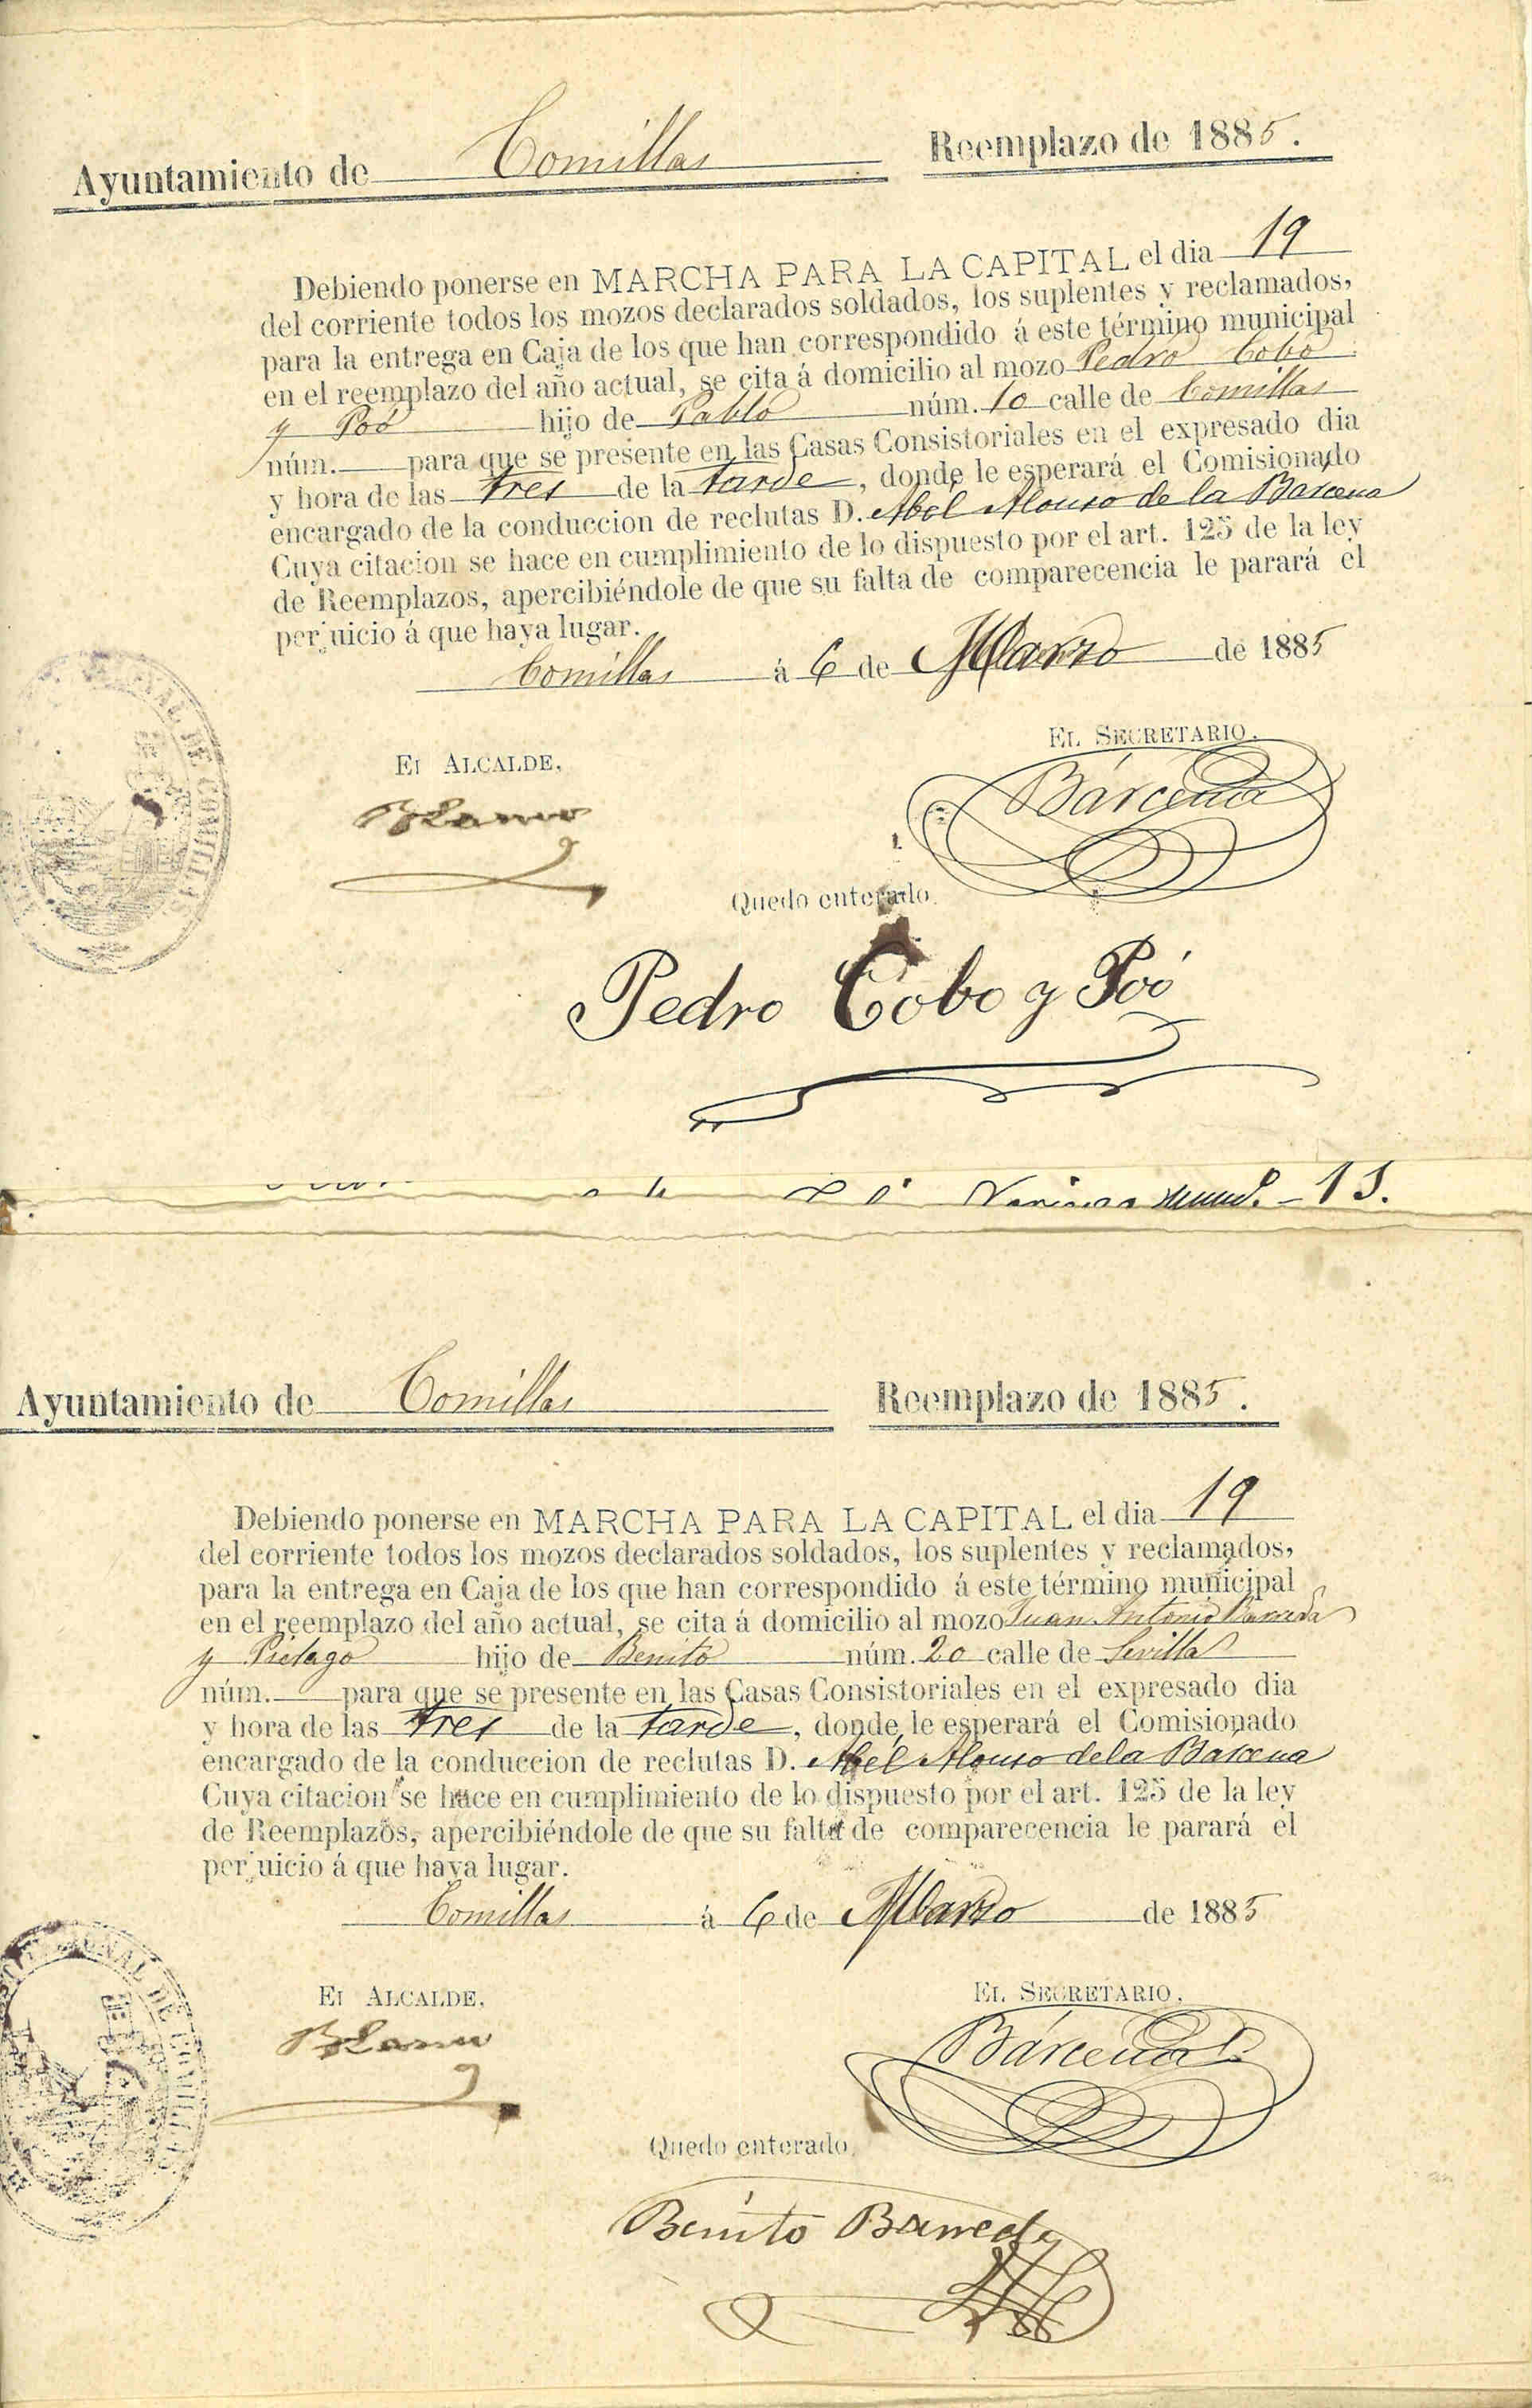 Ayuntamiento de Comillas Reemplazo de 1885.
Debiendo ponerse en MARCHA PARA LA CAPITAL el dia 19
del corriente todos los mozos declarados soldados, los suplentes y reclamados,
para la entrega en Caja de los que han correspondido á este término municipal
en el reemplazo del año actual, se cita á domicilio al mozo Pedro Cobo
y Poó hijo de Pablo núm. 10 calle de Comillas
núm. para que se presente en las Casas Consistoriales en el expresado dia
y hora de las tres de la tarde, donde le esperará el Comisionado
encargado de la conduccion de reclutas D. Abél Alonso de la Bárcena
Cuya citacion se hace en cumplimiento de lo dispuesto por el art. 125 de la ley
de Reemplazos, apercibiéndole de que su falta de comparecencia le parará el
perjuicio á que haya lugar.
Comillas á 6 de Marzo de 1885
El Alcalde,
El Secretario,
Bárcena
Quedo enterado,
Pedro Cobo y Poó
13.
Ayuntamiento de Comillas Reemplazo de 1885.
Debiendo ponerse en MARCHA PARA LA CAPITAL el dia 19
del corriente todos los mozos declarados soldados, los suplentes y reclamados,
para la entrega en Caja de los que han correspondido á este término municipal
en el reemplazo del año actual, se cita á domicilio al mozo Juan Antonio Barreda
y Piélago hijo de Benito núm. 20 calle de Sevilla
núm. para que se presente en las Casas Consistoriales en el expresado dia
y hora de las tres de la tarde, donde le esperará el Comisionado
encargado de la conduccion de reclutas D. Abél Alonso de la Bárcena
Cuya citacion se hace en cumplimiento de lo dispuesto por el art. 125 de la ley
de Reemplazos, apercibiéndole de que su falta de comparecencia le parará el
perjuicio á que haya lugar.
Comillas á 6 de Marzo de 1885
El Alcalde,
El Secretario,
Bárcena
Quedo enterado,
Benito Barreda